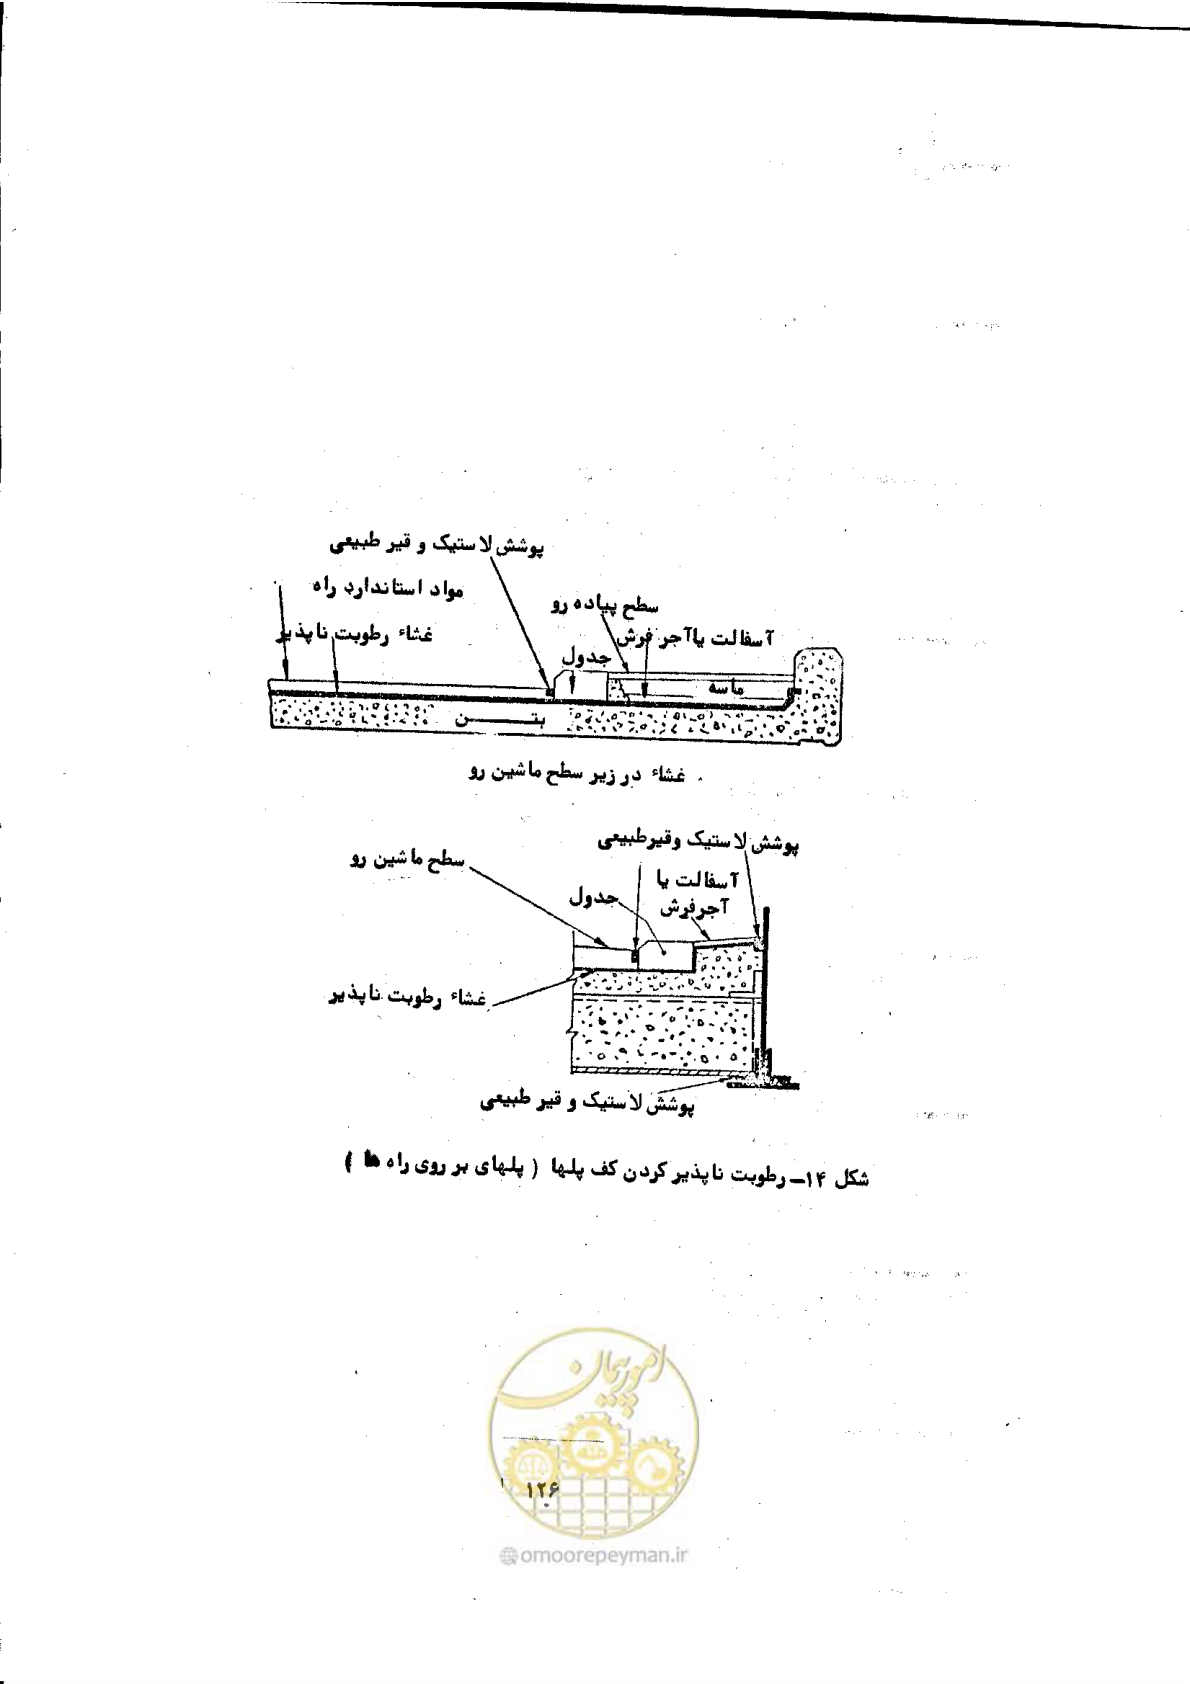 پوشش لاستیک و قیر طبیعی
مواد استاندارد راه
سطح پیاده رو
غشاء رطوبت ناپذیر
آسفالت یا آجر فرش
جدول
ماسه
بتن
غشاء در زیر سطح ماشین رو
پوشش لاستیک وقیر طبیعی
سطح ماشین رو
آسفالت یا
آجر فرش
جدول
غشاء رطوبت ناپذیر
پوشش لاستیک و قیر طبیعی
شکل ۱۴- رطوبت ناپذیر کردن کف پلها ( پلهای بر روی راه ها )
امور پیمان
۱۲۶
@omoorepeyman.ir